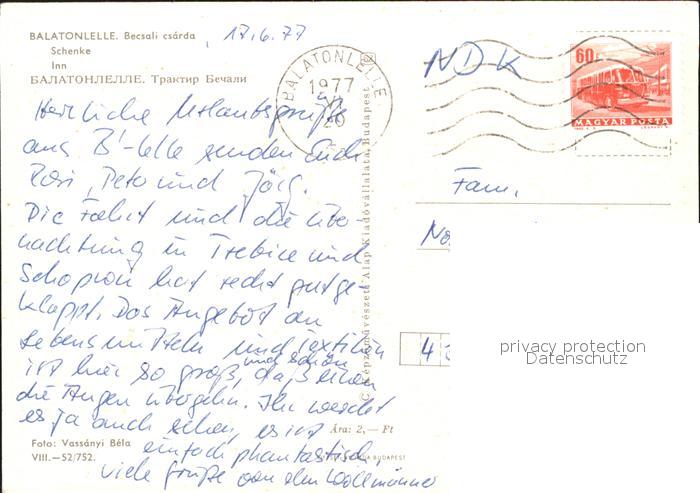 BALATONLELLE. Becsali csárda
Schenke
Inn
БАЛАТОНЛЕЛЛЕ. Трактир Бечали
17.6.77
BALATONLELLE
1977
VI
20
NDK
60f
MAGYAR POSTA
Herrliche Urlaubsgrüße
aus B'-lelle senden Euch
Rosi, Peto und Jörg.
Die Fahrt und die Über
nachtung in Trebice und
Schopron hat recht gut ge-
klappt. Das Angebot an
Lebensmitteln und Textilien
ist hier so groß, und schön
daß einen
die Augen übergehn. Ihr werdet
es ja auch sehen, es ist
einfach phantastisch.
Viele Grüße von den
Fam.
No.
4
privacy protection
Datenschutz
© Képzőművészeti Alap Kiadóvállalata, Budapest
Ára: 2,— Ft
Foto: Vassányi Béla
VIII.—52/752.
BUDAPEST